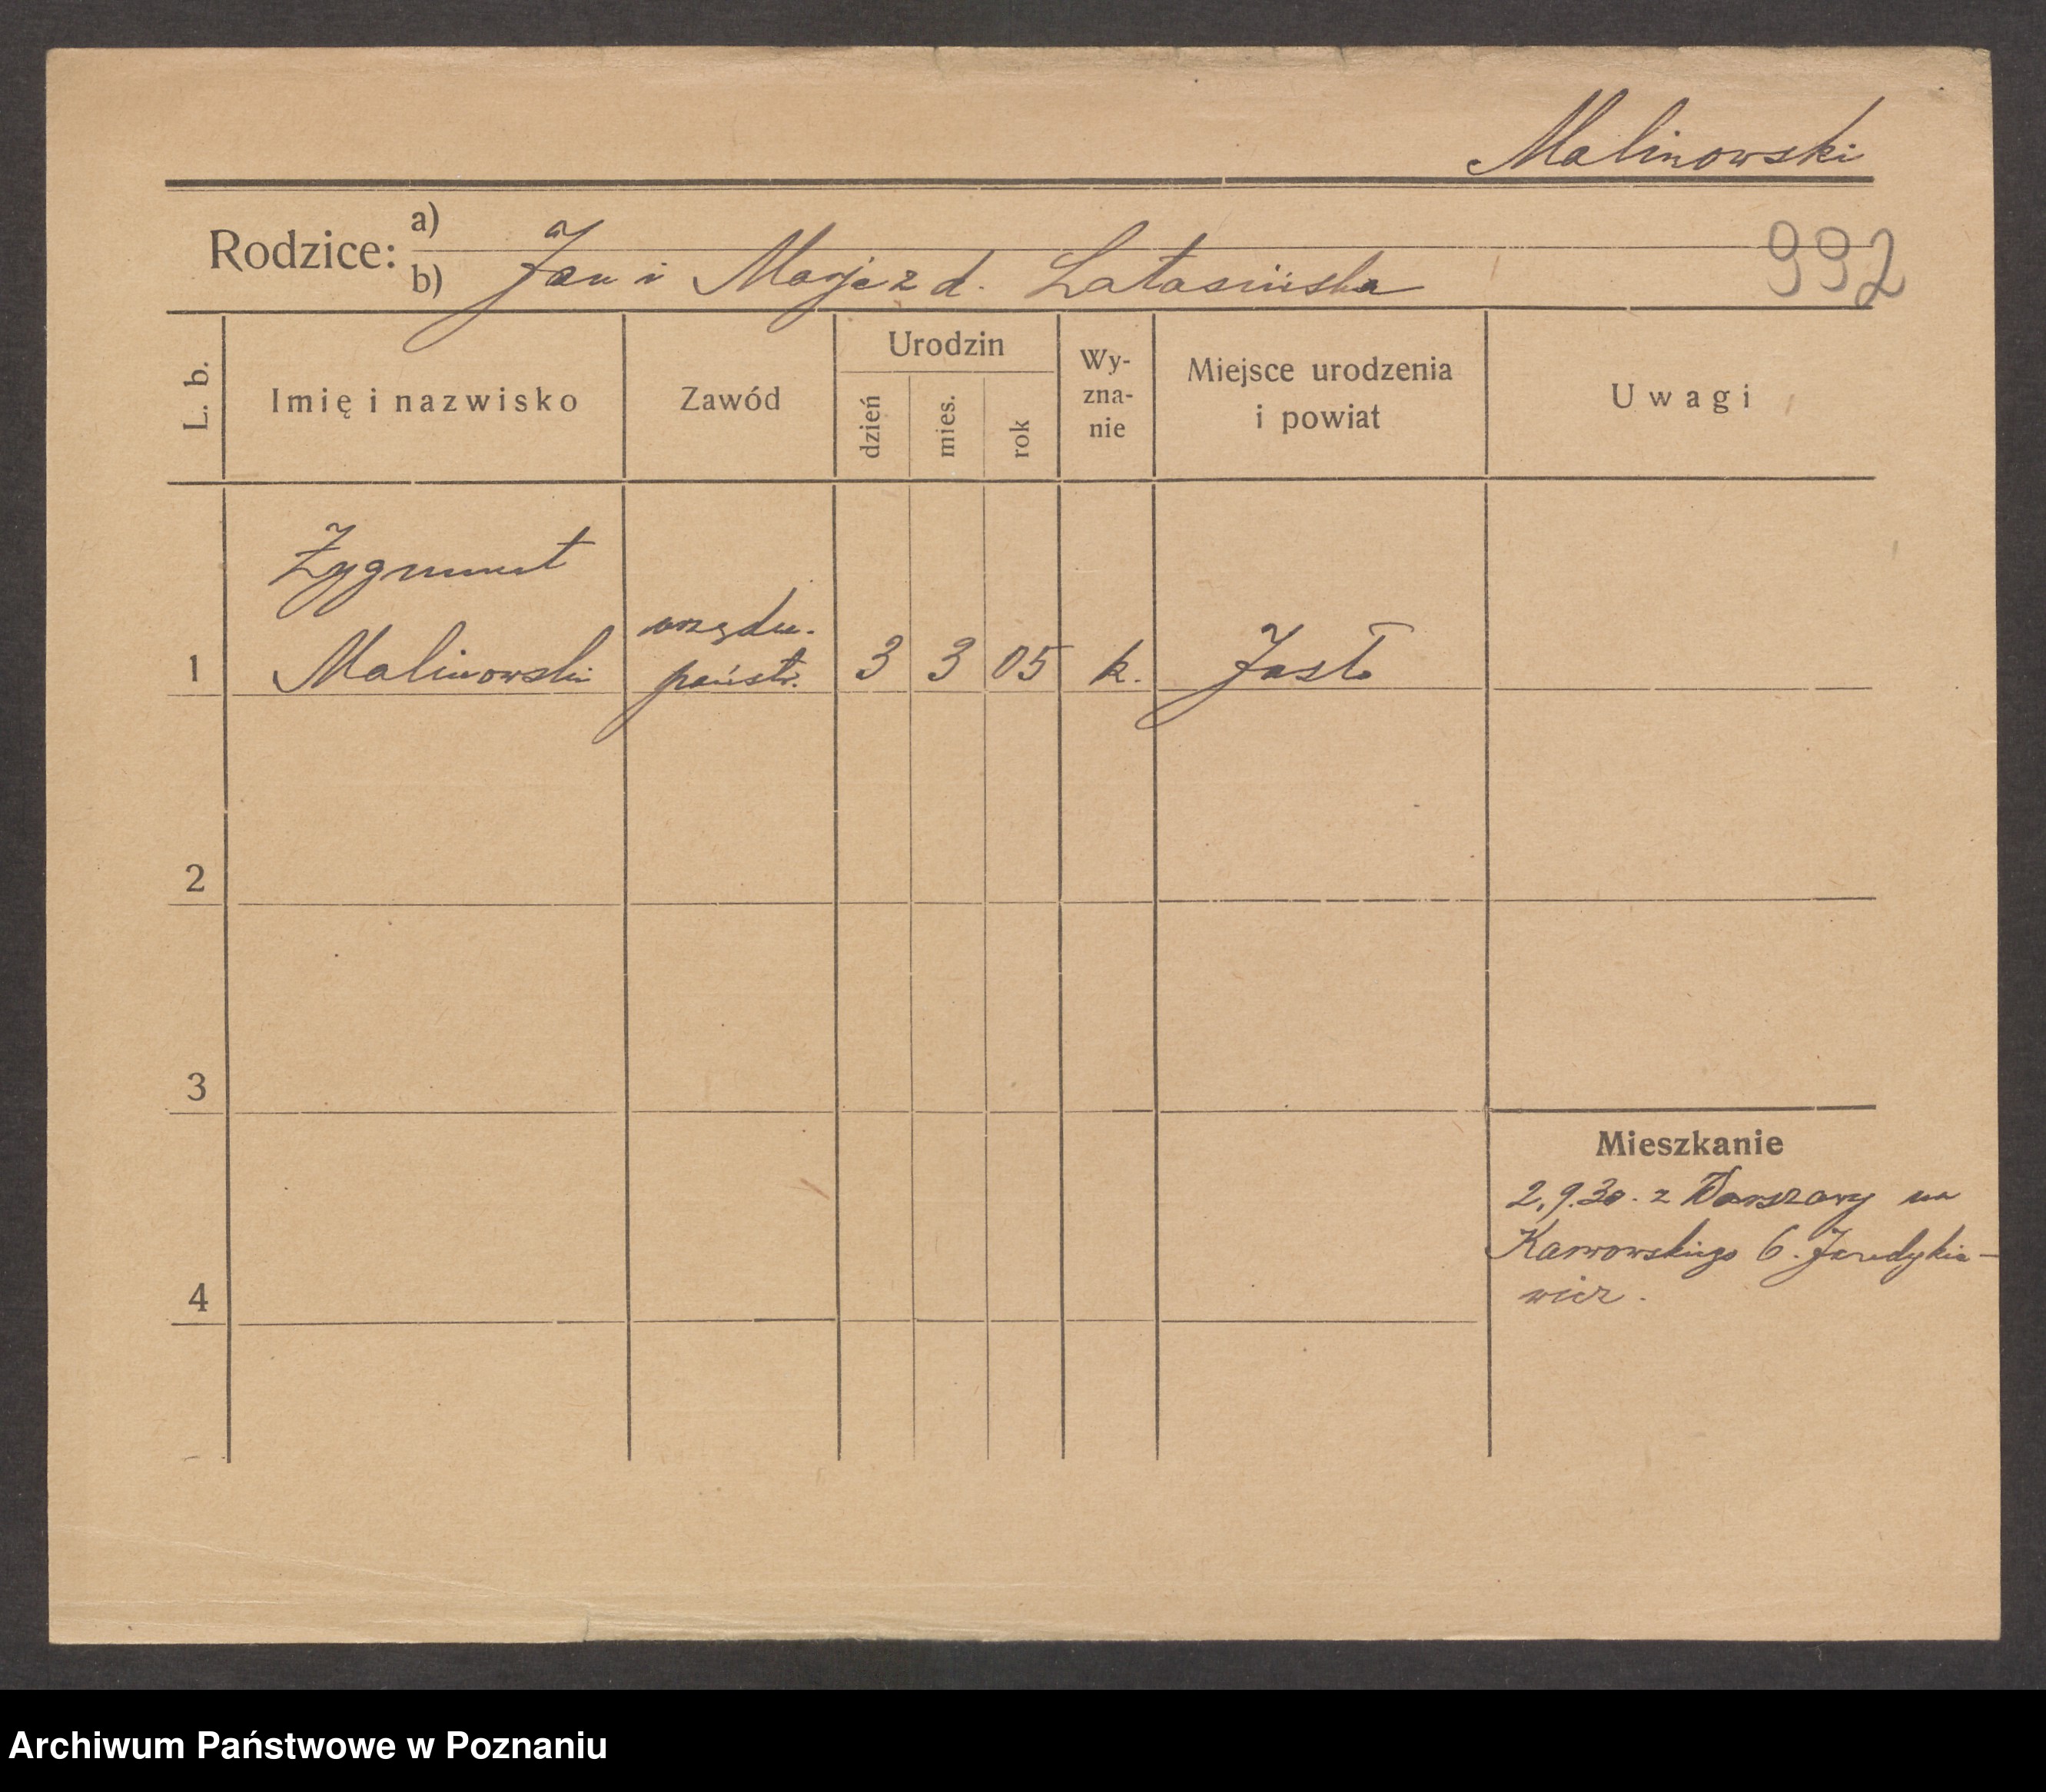 Malinowski
Rodzice: a)
b) Jan i Marja z d. Latasińska
992
L. b.
Imię i nazwisko
Zawód
Urodzin
dzień
mies.
rok
Wy-
zna-
nie
Miejsce urodzenia
i powiat
Uwagi
Zygmunt
urzędn.
1 Malinowski państw. 3 3 05 k. Jasło
2
3
Mieszkanie
2.9.30. z Warszawy na
Karwowskiego 6.
4
wicz.
Archiwum Państwowe w Poznaniu